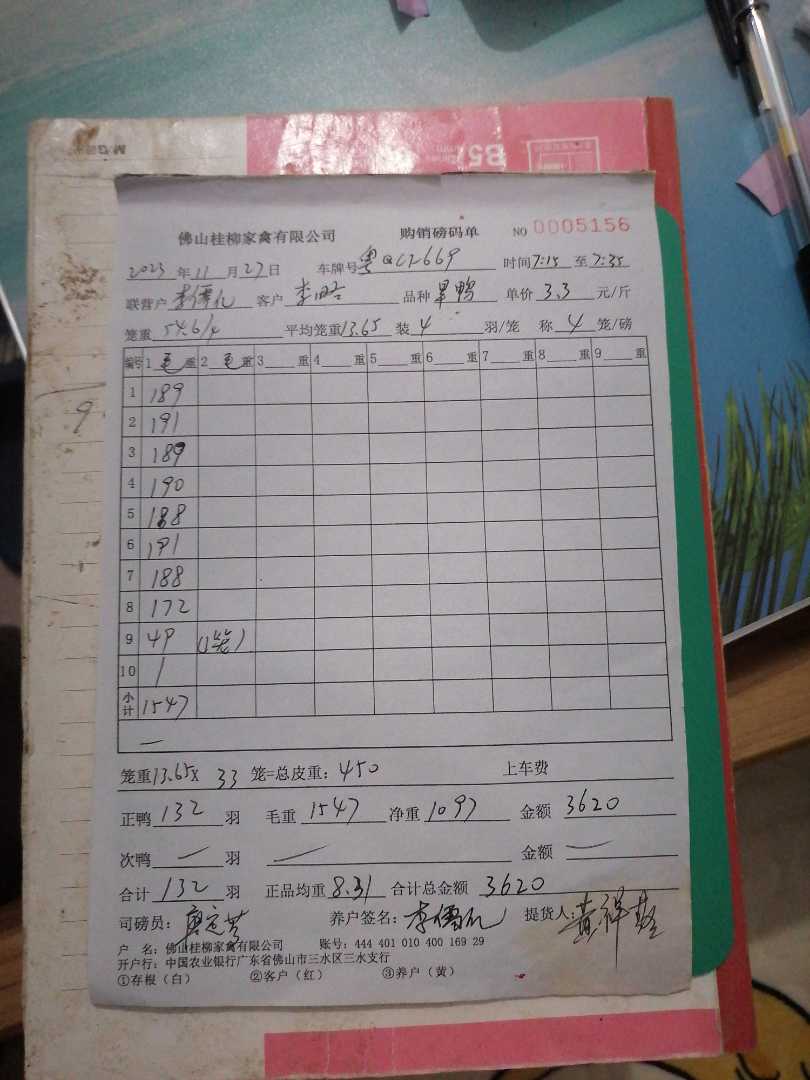 B5
佛山桂柳家禽有限公司 购销磅码单 NO 0005156
2023年11月27日 车牌号 粤 时间7:15至7:35
联营户 李 客户 李 品种 鸭 单价 3.3 元/斤
笼重 54.6/4 平均笼重13.65 装 4 羽/笼 称 4 笼/磅
编号 1 毛 重 2 毛 重 3 重 4 重 5 重 6 重 7 重 8 重 9 重
1 189
2 191
3 189
4 190
5 188
6 191
7 188
8 172
9 49 (1笼)
10 /
小计 1547
—
笼重13.65x 33 笼=总皮重:450 上车费
正鸭 132 羽 毛重 1547 净重 1097 金额 3620
次鸭 — 羽 — 金额 —
合计 132 羽 正品均重 8.31 合计总金额 3620
司磅员: 养户签名: 李 提货人: 黄
户 名:佛山桂柳家禽有限公司 账号:444 401 010 400 169 29
开户行:中国农业银行广东省佛山市三水区三水支行
①存根(白) ②客户(红) ③养户(黄)